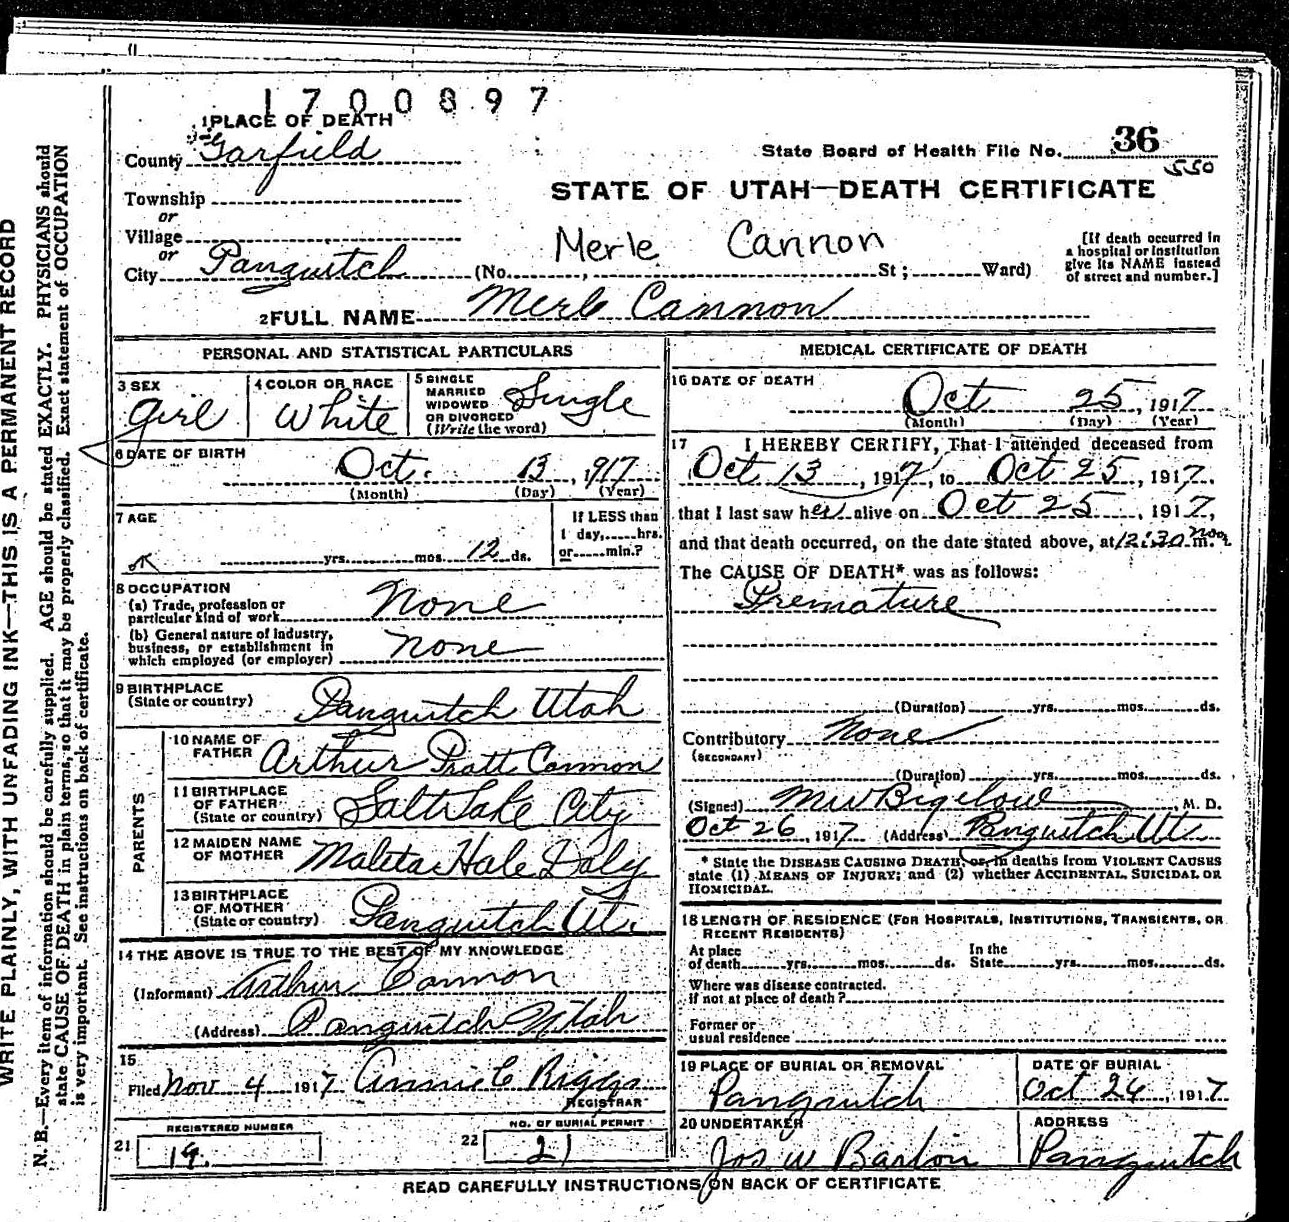 1700897
1 PLACE OF DEATH
County Garfield
State Board of Health File No. 36
550
Township
or
Village
or
City Panguitch (No. , St ; Ward)
STATE OF UTAH—DEATH CERTIFICATE
Merle Cannon
[If death occurred in
a hospital or institution
give its NAME instead
of street and number.]
2 FULL NAME Merle Cannon
PERSONAL AND STATISTICAL PARTICULARS
3 SEX
girl
4 COLOR OR RACE
White
5 SINGLE
MARRIED
WIDOWED
OR DIVORCED
(Write the word)
Single
6 DATE OF BIRTH
Oct. 13, 917
(Month) (Day) (Year)
7 AGE
yrs. mos. 12 ds.
If LESS than
1 day, hrs.
or min.?
8 OCCUPATION
(a) Trade, profession or
particular kind of work None
(b) General nature of industry,
business, or establishment in
which employed (or employer) None
9 BIRTHPLACE
(State or country) Panguitch Utah
PARENTS
10 NAME OF
FATHER Arthur Pratt Cannon
11 BIRTHPLACE
OF FATHER
(State or country) Salt Lake City
12 MAIDEN NAME
OF MOTHER Maleta Hale Daly
13 BIRTHPLACE
OF MOTHER
(State or country) Panguitch Ut.
14 THE ABOVE IS TRUE TO THE BEST OF MY KNOWLEDGE
(Informant) Arthur Cannon
(Address) Panguitch Utah
15
Filed Nov 4 1917 Annie C Riggs
REGISTRAR
REGISTERED NUMBER
21 19.
NO. OF BURIAL PERMIT
22 21
MEDICAL CERTIFICATE OF DEATH
16 DATE OF DEATH
Oct 25, 1917
(Month) (Day) (Year)
17 I HEREBY CERTIFY, That I attended deceased from
Oct 13, 1917, to Oct 25, 1917.
that I last saw her alive on Oct 25, 1917,
and that death occurred, on the date stated above, at 12:30 m. noon
The CAUSE OF DEATH* was as follows:
Premature
(Duration) yrs. mos. ds.
Contributory None
(SECONDARY)
(Duration) yrs. mos. ds.
(Signed) M W Bigelow, M. D.
Oct 26, 1917 (Address) Panguitch Ut
* State the DISEASE CAUSING DEATH; or, in deaths from VIOLENT CAUSES
state (1) MEANS OF INJURY; and (2) whether ACCIDENTAL, SUICIDAL OR
HOMICIDAL.
18 LENGTH OF RESIDENCE (FOR HOSPITALS, INSTITUTIONS, TRANSIENTS, OR
RECENT RESIDENTS)
At place
of death yrs. mos. ds.
In the
State yrs. mos. ds.
Where was disease contracted.
if not at place of death?
Former or
usual residence
19 PLACE OF BURIAL OR REMOVAL
Panguitch
DATE OF BURIAL
Oct 26, 1917
20 UNDERTAKER
Jos W Barton
ADDRESS
Panguitch
READ CAREFULLY INSTRUCTIONS ON BACK OF CERTIFICATE
WRITE PLAINLY, WITH UNFADING INK—THIS IS A PERMANENT RECORD
N. B.—Every item of information should be carefully supplied. AGE should be stated EXACTLY. PHYSICIANS should
state CAUSE OF DEATH in plain terms, so that it may be properly classified. Exact statement of OCCUPATION
is very important. See instructions on back of certificate.